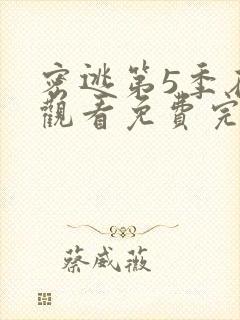 密逃第5季
觀看免費完
蔡威薇